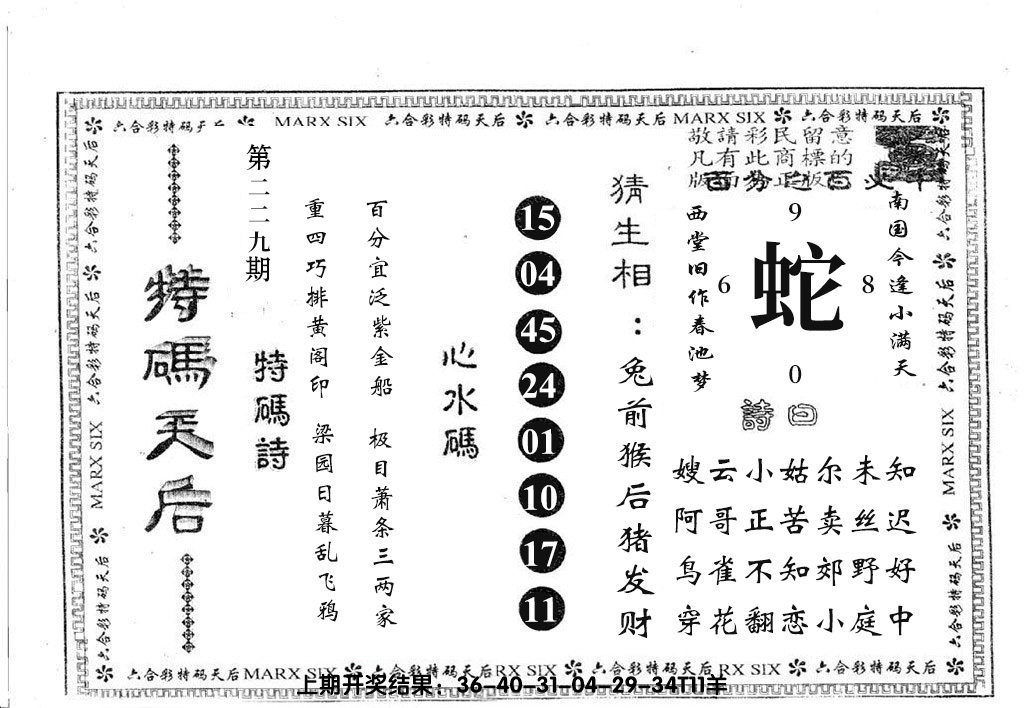 六合彩特码天后 MARX SIX 六合彩特码天后 六合彩特码天后 MARX SIX 六合彩特码天后
敬請彩民留意
凡有此商標的
版面
正版
南国今逢小满天
9
6
蛇
8
0
西堂旧作春池梦
詩曰
知迟好中
未丝野庭
尔卖郊小
姑苦知恋
小正不翻
云哥雀花
嫂阿鸟穿
猜生相：兔前猴后猪发财
15
04
45
24
01
10
17
11
心水碼
百分宜泛紫金船 极目萧条三两家
重四巧排黄阁印 梁园日暮乱飞鸦
第二二九期
特碼詩
特碼天后
六合彩特码天后 MARX SIX 六合彩特码天后
六合彩特码天后 MARX SIX 六合彩特码天后
六合彩特码天后 MARX SIX 六合彩特码天后 RX SIX 六合彩特码天后 RX SIX 六合彩特码天后
上期开奖结果：36-40-31-04-29-34T11羊